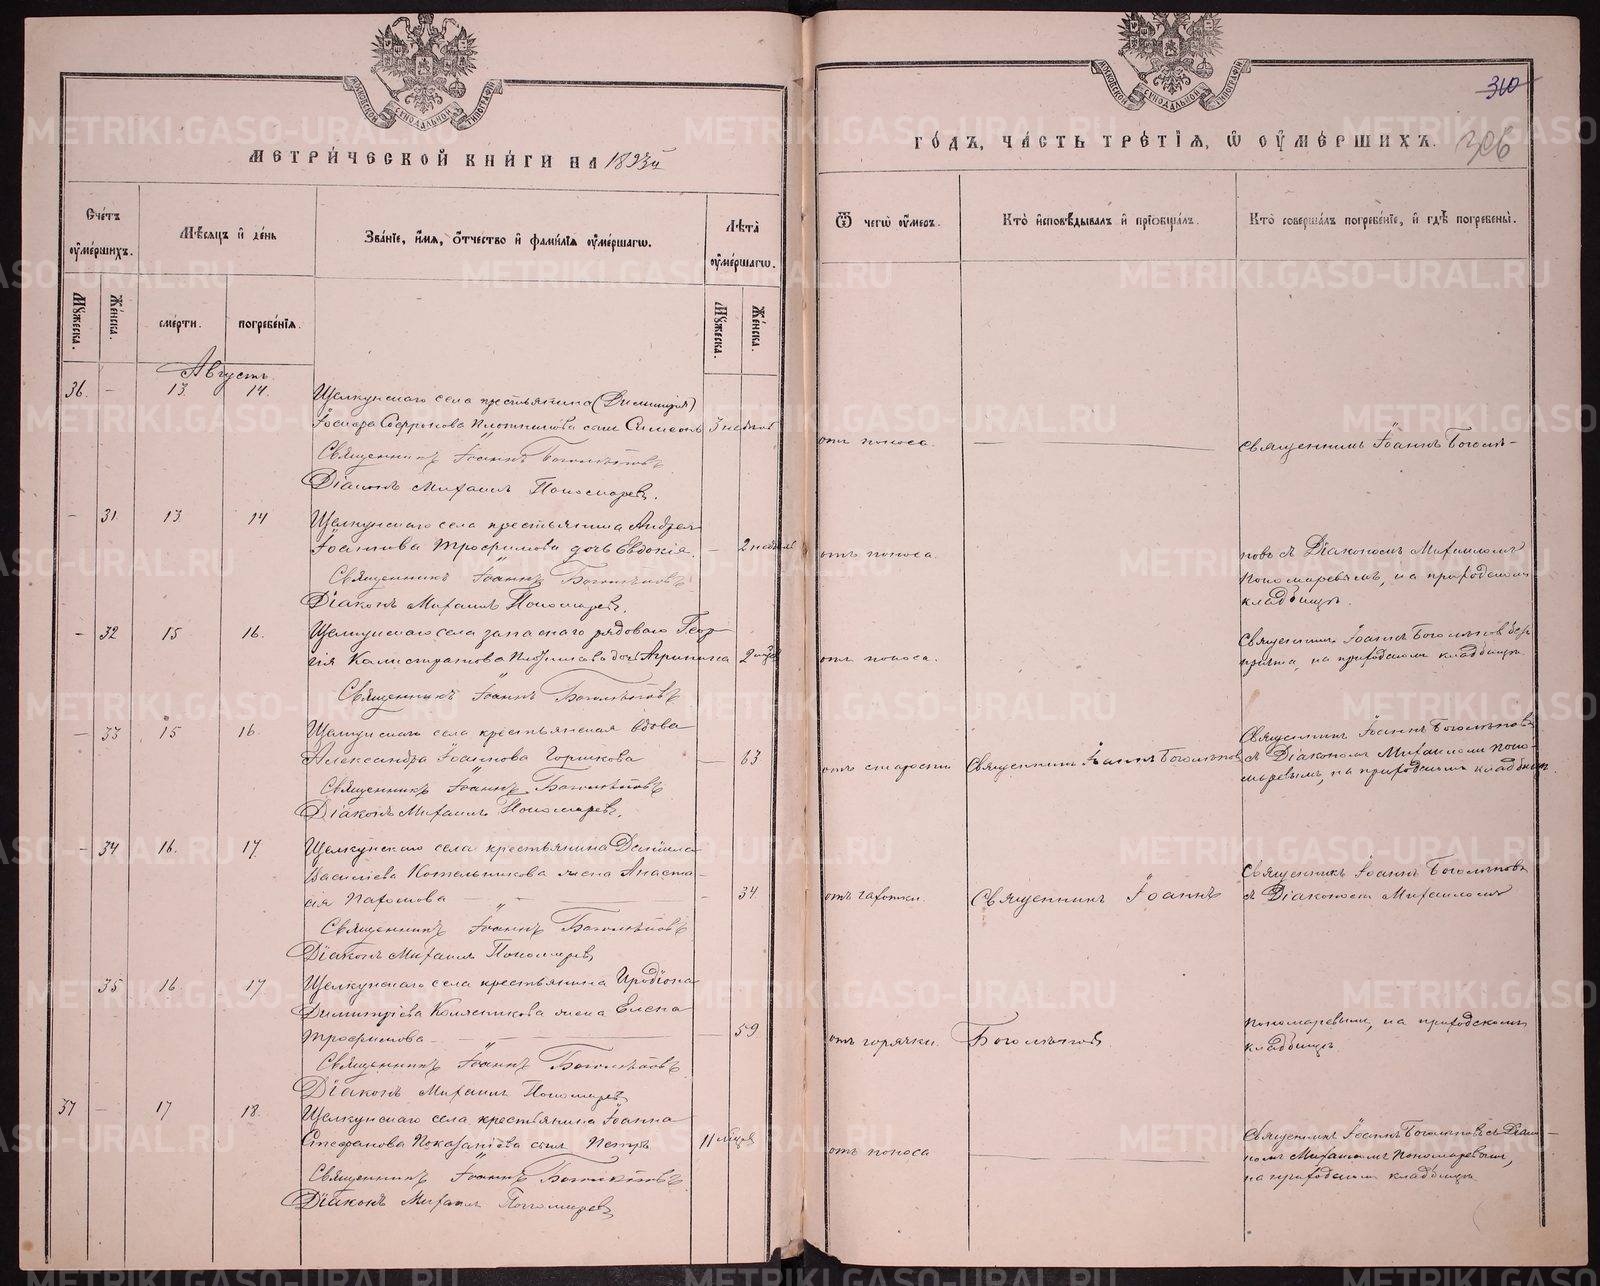 МОСКОВСКОЙ СѴНОДАЛЬНОЙ ТИПОГРАФІИ
МЕТРИ́ЧЕСКОЙ КНИ́ГИ НА 1893й
Счетъ оумершихъ.
Мѣсяцъ и день
Званіе, имя, отчество и фамилія оумершагѡ.
Лѣта оумершагѡ.
Мꙋжеска.
Женска.
смерти.
погребенія.
Мꙋжеска.
Женска.
Августъ
36. - 13. 14.
Щелкунскаго села крестьянина (Димитрія)
Сафронова Плотникова сынъ Симеонъ 3 недѣл
Священникъ Іоаннъ Боголѣповъ
Діаконъ Михаилъ Пономаревъ.
- 31. 13. 14
Щелкунскаго села крестьянина Андрея
Іоаннова Трофимова дочь Евдокія. - 2 недѣли
Священникъ Іоаннъ Боголѣповъ
Діаконъ Михаилъ Пономаревъ.
- 32 15 16.
Щелкунскаго села запаснаго рядоваго Геор-
гія Калистратова дочь Агрипина 2 мѣс
Священникъ Іоаннъ Боголѣповъ
- 33 15 16.
Щелкунскаго села крестьянская вдова
Александра Іоаннова Горшкова - 63
Священникъ Іоаннъ Боголѣповъ
Діаконъ Михаилъ Пономаревъ.
- 34 16. 17.
Щелкунскаго села крестьянина Даніила
Василіева Котельникова жена Анаста-
сія Пахомова - 34
Священникъ Іоаннъ Боголѣповъ
Діаконъ Михаилъ Пономаревъ
35 16. 17
Щелкунскаго села крестьянина Иродіона
Димитріева Колясникова жена Елена
Трофимова - 59
Священникъ Іоаннъ Боголѣповъ
Діаконъ Михаилъ Пономаревъ
37 - 17 18.
Щелкунскаго села крестьянина Іоанна
Стефанова Показаніева сынъ Петръ 11 мѣсяц
Священникъ Іоаннъ Боголѣповъ
Діаконъ Михаилъ Пономаревъ
МОСКОВСКОЙ СѴНОДАЛЬНОЙ ТИПОГРАФІИ
310
ГО́ДЪ, ЧА́СТЬ ТРЕ́ТІѦ, Ѡ ОУМЕ́РШИХЪ. 306
Ѿ чегѡ оумеръ.
Кто исповѣдывалъ и пріобщалъ.
Кто совершалъ погребеніе, и гдѣ погребены.
отъ поноса.
Священникъ Іоаннъ Боголѣ-
отъ поноса.
повъ съ Діакономъ Михаиломъ
Пономаревымъ, на приходскомъ
кладбищѣ.
отъ поноса.
Священникъ Іоаннъ Боголѣповъ безъ
причта, на приходскомъ кладбищѣ
отъ старости Священникъ Іоаннъ Боголѣповъ
Священникъ Іоаннъ Боголѣповъ
съ Діакономъ Михаиломъ Поно-
маревымъ, на приходскомъ кладбищѣ.
отъ чахотки. Священникъ Іоаннъ
Священникъ Іоаннъ Боголѣповъ
съ Діакономъ Михаиломъ
отъ горячки. Боголѣповъ
Пономаревымъ, на приходскомъ
кладбищѣ.
отъ поноса
Священникъ Іоаннъ Боголѣповъ съ Діако-
номъ Михаиломъ Пономаревымъ,
на приходскомъ кладбищѣ.
METRIKI.GASO-URAL.RU